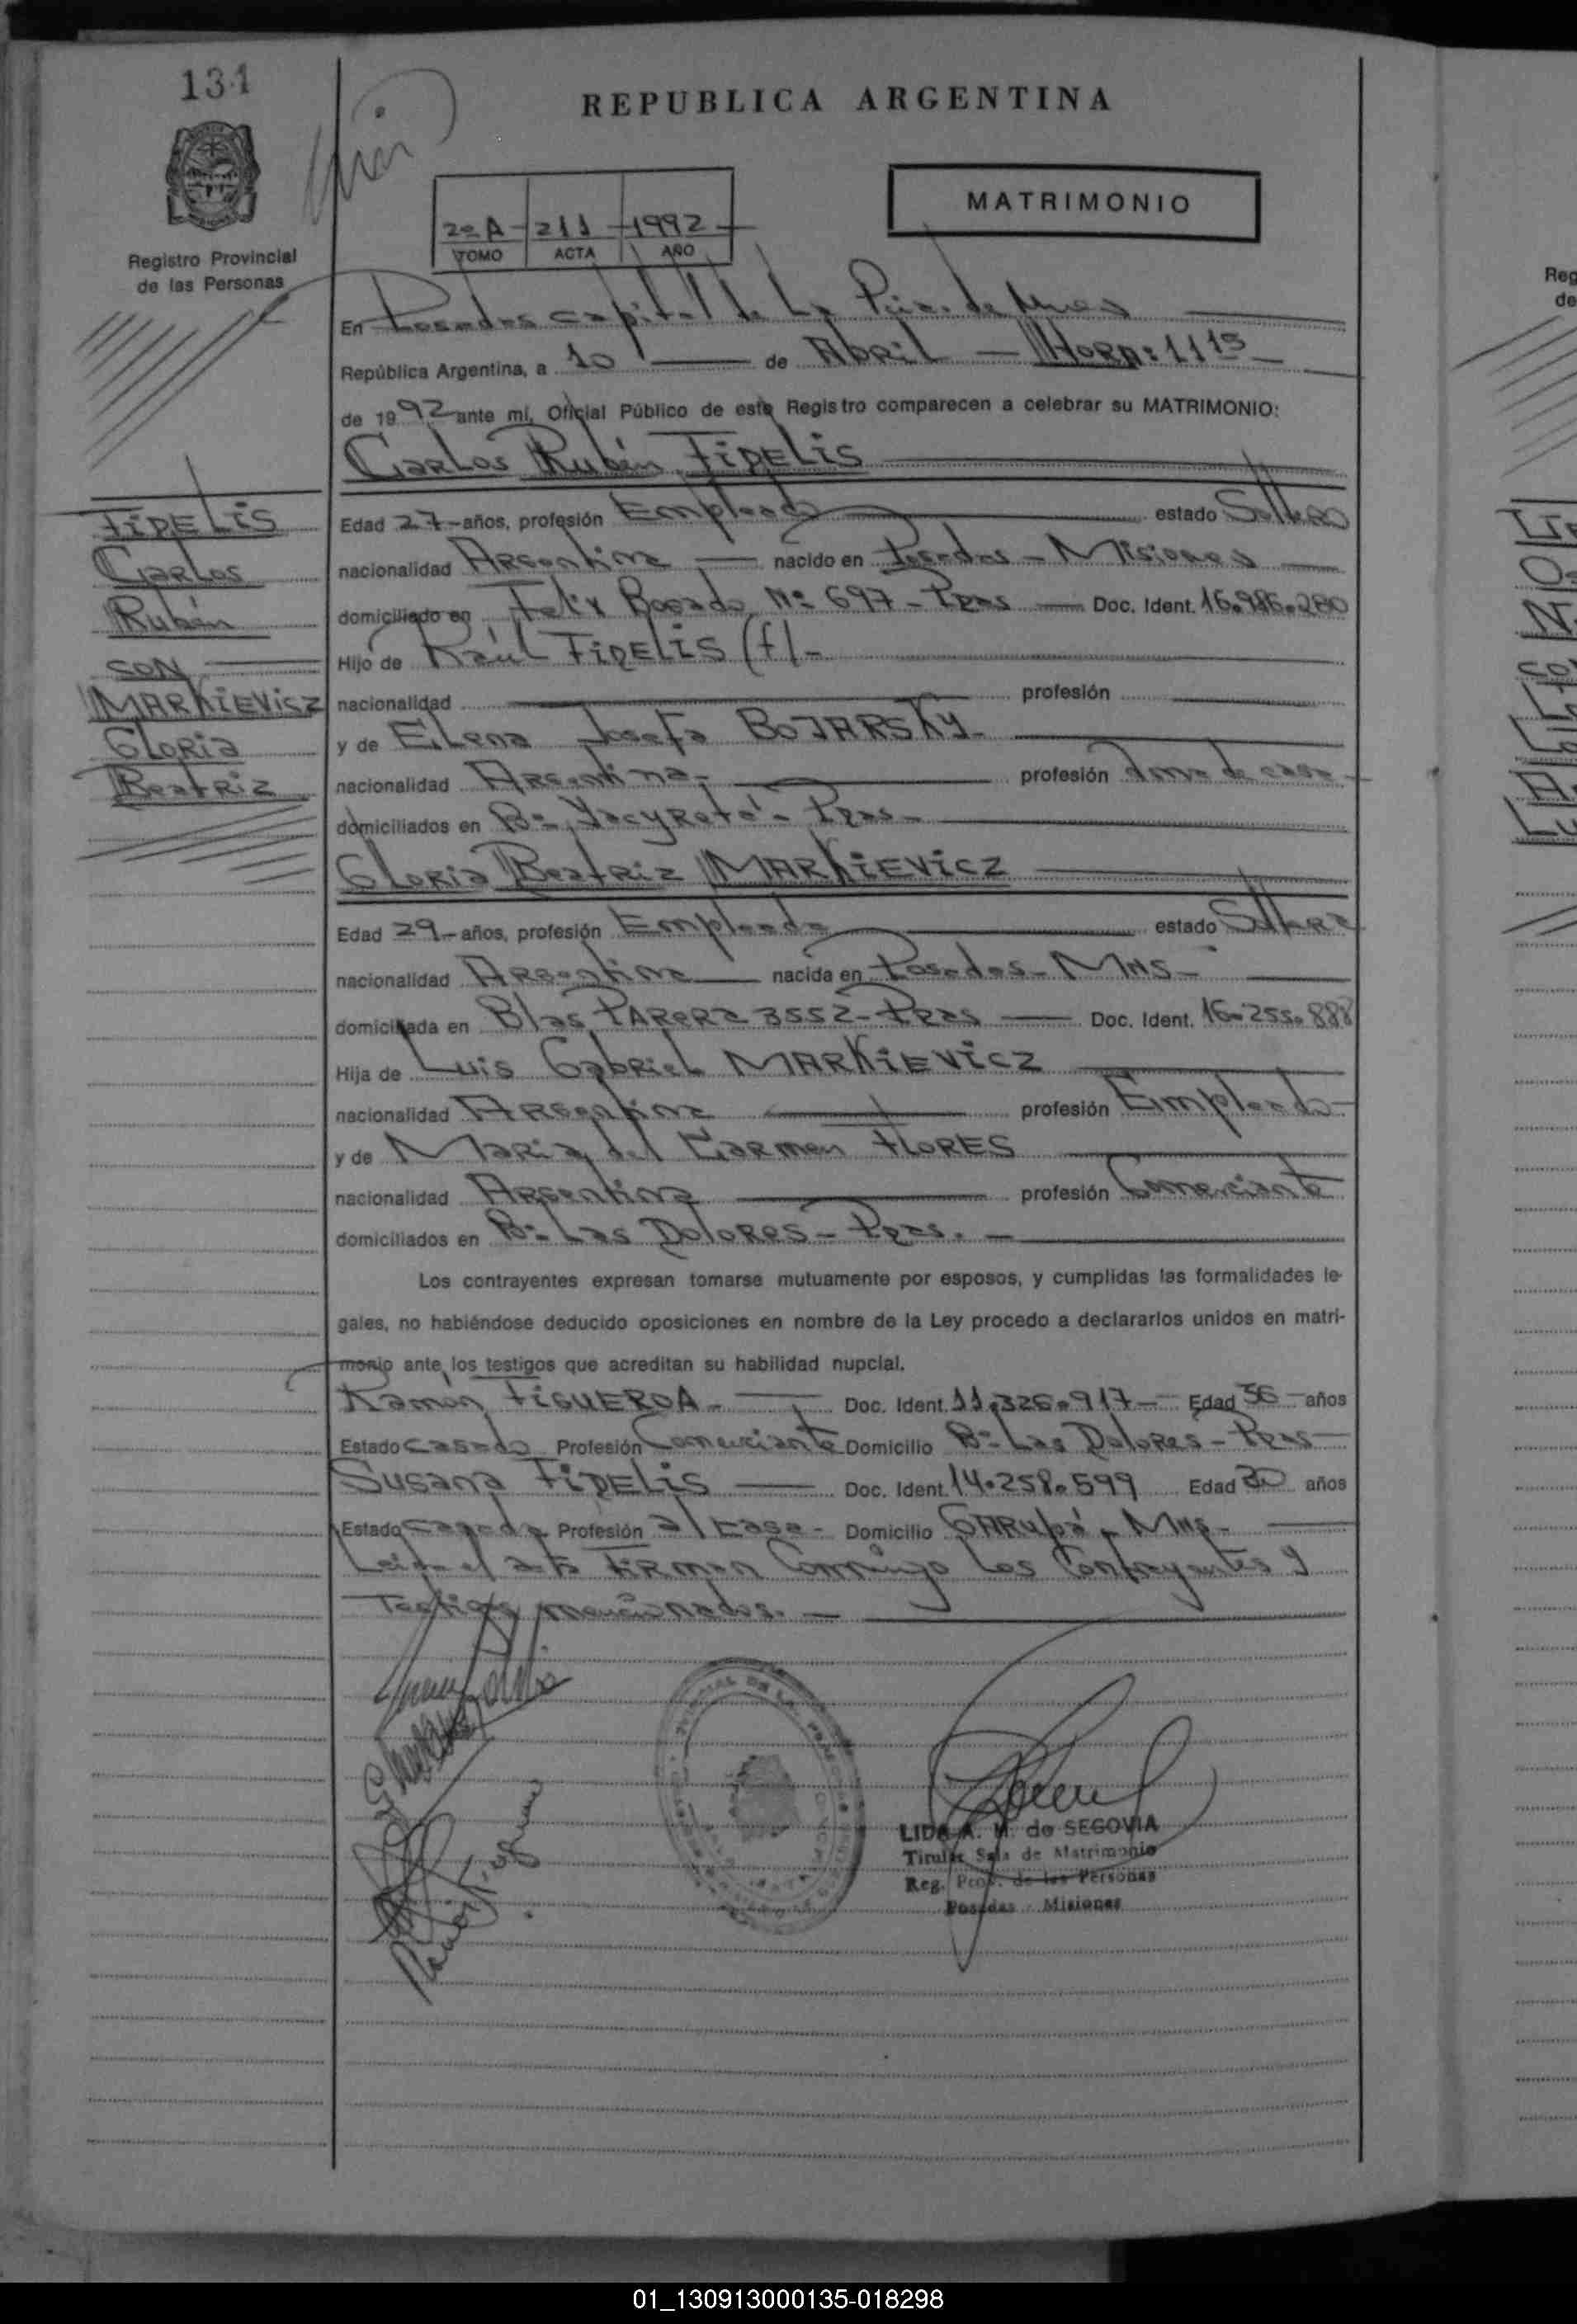 131
REPUBLICA ARGENTINA
MATRIMONIO
2º A - 211 - 1992
TOMO ACTA AÑO
Registro Provincial
de las Personas
En Posadas capital de La Pcia. de Mnes
República Argentina, a 10 de Abril - HORA: 11 15
de 1992 ante mí, Oficial Público de este Registro comparecen a celebrar su MATRIMONIO:
Carlos Rubén FIDELIS
FIDELIS
Carlos
Rubén
CON
MARKIEVICZ
Gloria
Beatriz
Edad 27 - años, profesión Empleado estado Soltero
nacionalidad Argentina nacido en Posadas - Misiones
domiciliado en Felix Bogado Nº 697 - Pdas Doc. Ident. 16.986.280
Hijo de Raúl FIDELIS (f) -
nacionalidad profesión
y de Elena Josefa BOJARSKY -
nacionalidad Argentina - profesión ama de casa -
domiciliados en Bº Yacyretá - Pdas -
Gloria Beatriz MARKIEVICZ
Edad 29 - años, profesión Empleada estado Soltera
nacionalidad Argentina nacida en Posadas - Mns -
domiciliada en Blas Parera 3552 - Pdas Doc. Ident. 16.255.888
Hija de Luis Gabriel MARKIEVICZ
nacionalidad Argentina profesión Empleado -
y de Maria del Carmen FLORES
nacionalidad Argentina profesión Comerciante
domiciliados en Bº Las Dolores - Pdas. -
Los contrayentes expresan tomarse mutuamente por esposos, y cumplidas las formalidades le-
gales, no habiéndose deducido oposiciones en nombre de la Ley procedo a declararlos unidos en matri-
monio ante los testigos que acreditan su habilidad nupcial.
Ramón FIGUEROA - Doc. Ident. 11.326.917 - Edad 36 - años
Estado casado Profesión Comerciante Domicilio Bº Las Dolores - Pdas
Susana FIDELIS Doc. Ident. 14.258.599 Edad 30 años
Estado casada Profesión a/casa - Domicilio GARUPÁ - Mns -
Leida el acta firman Conmigo Los Contrayentes y
Testigos mencionados. -
LIDA A. M. de SEGOVIA
Titular Sala de Matrimonio
Reg. Prov. de las Personas
Posadas - Misiones
Reg
de
01_130913000135-018298